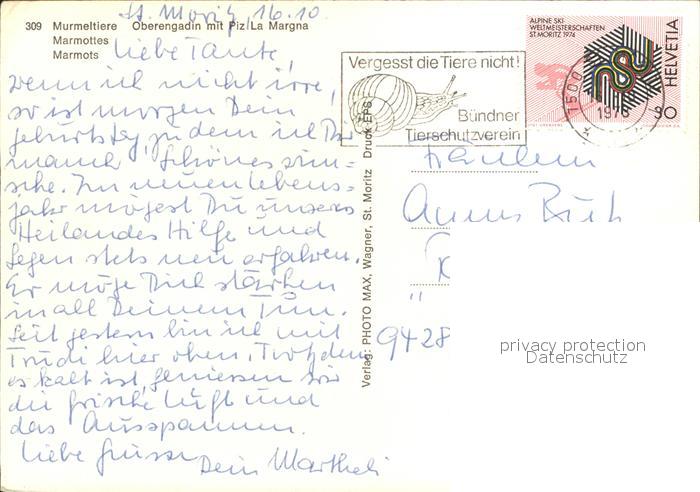 St. Moritz, 16.10.
309 Murmeltiere Oberengadin mit Piz La Margna
Marmottes
Marmots
Liebe Tante,
wenn ich nicht irre,
so ist morgen Dein
Geburtstag, zu dem ich Dir
manch Schönes wün=
sche. Im neuen Lebens=
jahr mögest Du unseres
Heilandes Hilfe und
Segen stets neu erfahren.
Er möge Dich stärken
in all Deinem Tun.
Seit gestern bin ich mit
Trudi hier oben. Trotzdem
es kalt ist, geniessen wir
die frische Luft und
das Ausspannen.
Liebe Grüsse Dein Martheli
Verlag: PHOTO MAX, Wagner, St. Moritz Druck EPS
Vergesst die Tiere nicht!
Bündner
Tierschutzverein
ALPINE SKI-
WELTMEISTERSCHAFTEN
ST. MORITZ 1974
HELVETIA
30
7500
Fräulein
Ruth
"
9428
privacy protection
Datenschutz